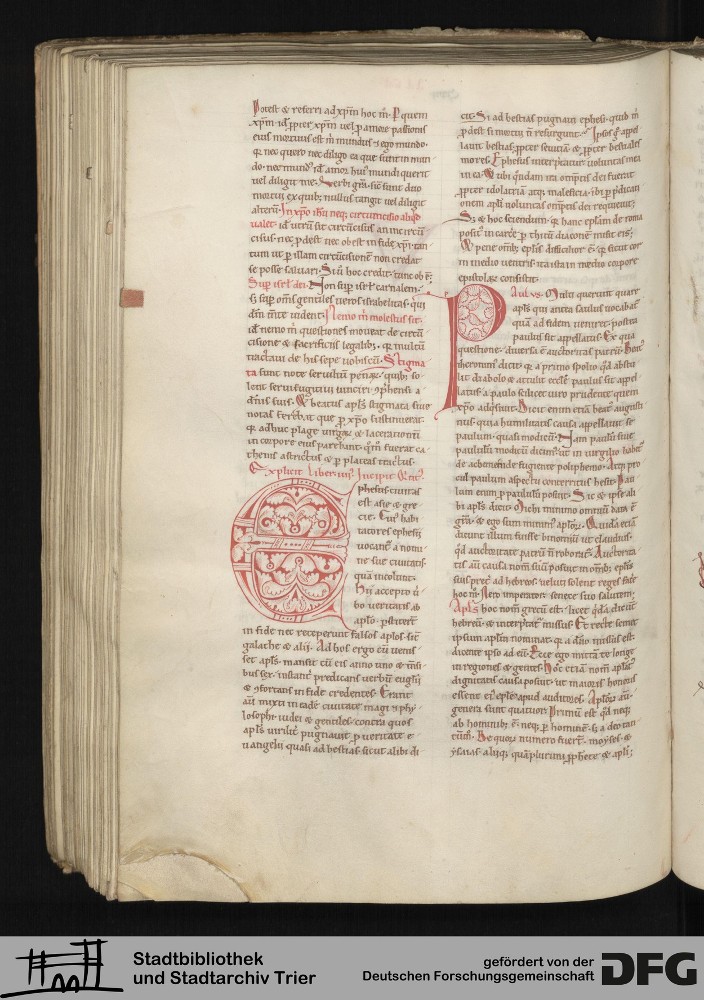 Potest & referri ad xpm hoc m. P quem
xpm. id. ppter xpm uel p amore passionis
eius mortuus est m mundus & ego mundo.
q nec quero nec diligo ea que sunt in mun
do. nec mund me. id. amor hui mundi querit
uel diligit me. Verbi gra. sic sunt duo
mortui ex quib; nullus tangit uel diligit
alterū. In xpo ihu neq; circumcisio aliqd
ualet. id. utrū sit circūcisus an incircū
cisus. nec pdest nec obest in fide xpi. tan
tum ut p illam circūcisionē non credat
se posse saluari. Si ū hoc credit. tunc obē.
Sup isrl dei. Non sup isrl carnalem.
s; sup oms gentiles ueros israhelitas. qui
dm mte uident. Nemo m molestus sit.
id. nemo m questiones moueat de circū
cisione & sacrificiis legalib;. q multū
tractaui de his sepe uobiscū. Stigma
ta sunt note seruitiu penaq;. quib; so
lent serui fugitiui uinciri. cphensi a
dnis suis. & beatus apls stigmata siue
notas ferebat que p xpo sustinuerat.
q adhuc plage uirgarū & lacerationū
in corpore eius parebant. qm fuerat ca
thenis astrictus & p plateas tractus.
Explicit liber. Incipit
Ephesus ciuitas
est asie & gre
cie. Cui habi
tatores ephesii
uocant a nomi
ne sue ciuitatis
quā incolunt.
Hii accepto u
bo ueritatis ab
aplo. pstiterē
in fide nec receperunt falsos aplos. sic
galathe & alii. Ad hos ergo cū uenis
set apls. mansit cū eis anno uno & msi
bus sex. instant predicans uerbū euglii
& cfortans in fide credentes. Erant
aū mixti in eadē ciuitate magi & phy
losophi. iudei & gentiles. contra quos
apls uirilit pugnauit p ueritate e
uangelii quasi ad bestias. sicut alibi di
cit. Si ad bestias pugnaui ephesi. quid m
pdest si mortui n resurgunt. Ipsos q appel
lauit bestias. ppter seuiciā & ppter bestiales
mores. Ephesus interpretatur uoluntas mea
in ea. Vbi qndam ita omptis dei fuerat
ppter idolatriā atq; maleficia. ibi p pdicati
onem apli uoluntas omptis dei requieuit.
S; & hoc sciendum. q hanc eplam de roma
posit in carcē p thicū diaconē misit eis.
& pene omib; eplis difficilior ē. q sicut cor
in medio uentris. ita ista in medio corpore
epistolarū consistit.
Paulus. Multi querunt quare
apls qui antea saulus uocabat
quā ad fidem ueniret. postea
paulus sit appellatus. Ex qua
questione. diuersa ē auctoritas patrū. Beat
iheronim dicit. q a primo spolio qd abstu
lit diabolo & attulit ecclē. paulus sit appel
latus. a paulo scilicet uiro prudente quem
xpo adqsiuit. Dicit enim etiā beat augusti
nus. quia humilitatis causa appellauit se
paulum. quasi modicū. Nam paulū siue
paululū modicū dicimus. ut in uirgilio habet
de achemenide fugiente poliphemo. At in pro
cul paulum aspectu conterritus hesit. Pau
lum enim p paululū posuit. Sic & ipse ali
bi apls dicit. Michi minimo omniū data ē
gra. & ego sum minim aplorū. Quida etiā
dicunt illum fuisse binomiū ut claudius.
qd auctoritate patrū n roborat. Auctorita
tis aū causa nom suū posuit in omib; eplis
suis pret ad hebreos. uelut solent reges face
hoc m. Nero imperator senece suo salutem.
Apls hoc nom grecū est. licet qda dicunt
hebreū. & interpretat missus. Et recte semet
ipsum aplm nominat. q a dno missus est.
dicente ipso ad eū. Ecce ego mittā te longe
in regiones & gentes. Hoc etiā nom aplat
dignitatis causa posuit. ut maioris honoris
essent ei eple apud auditores. Aplorū aū
genera sunt quatuor. Primū est qd neq;
ab hominib; ē. neq; p hominē. s; a deo tan
tūm. De quorū numero fuert. moyses &
ysaias. aliiq; quāplurimi pphete & apli;
Stadtbibliothek
und Stadtarchiv Trier
gefördert von der
Deutschen Forschungsgemeinschaft
DFG